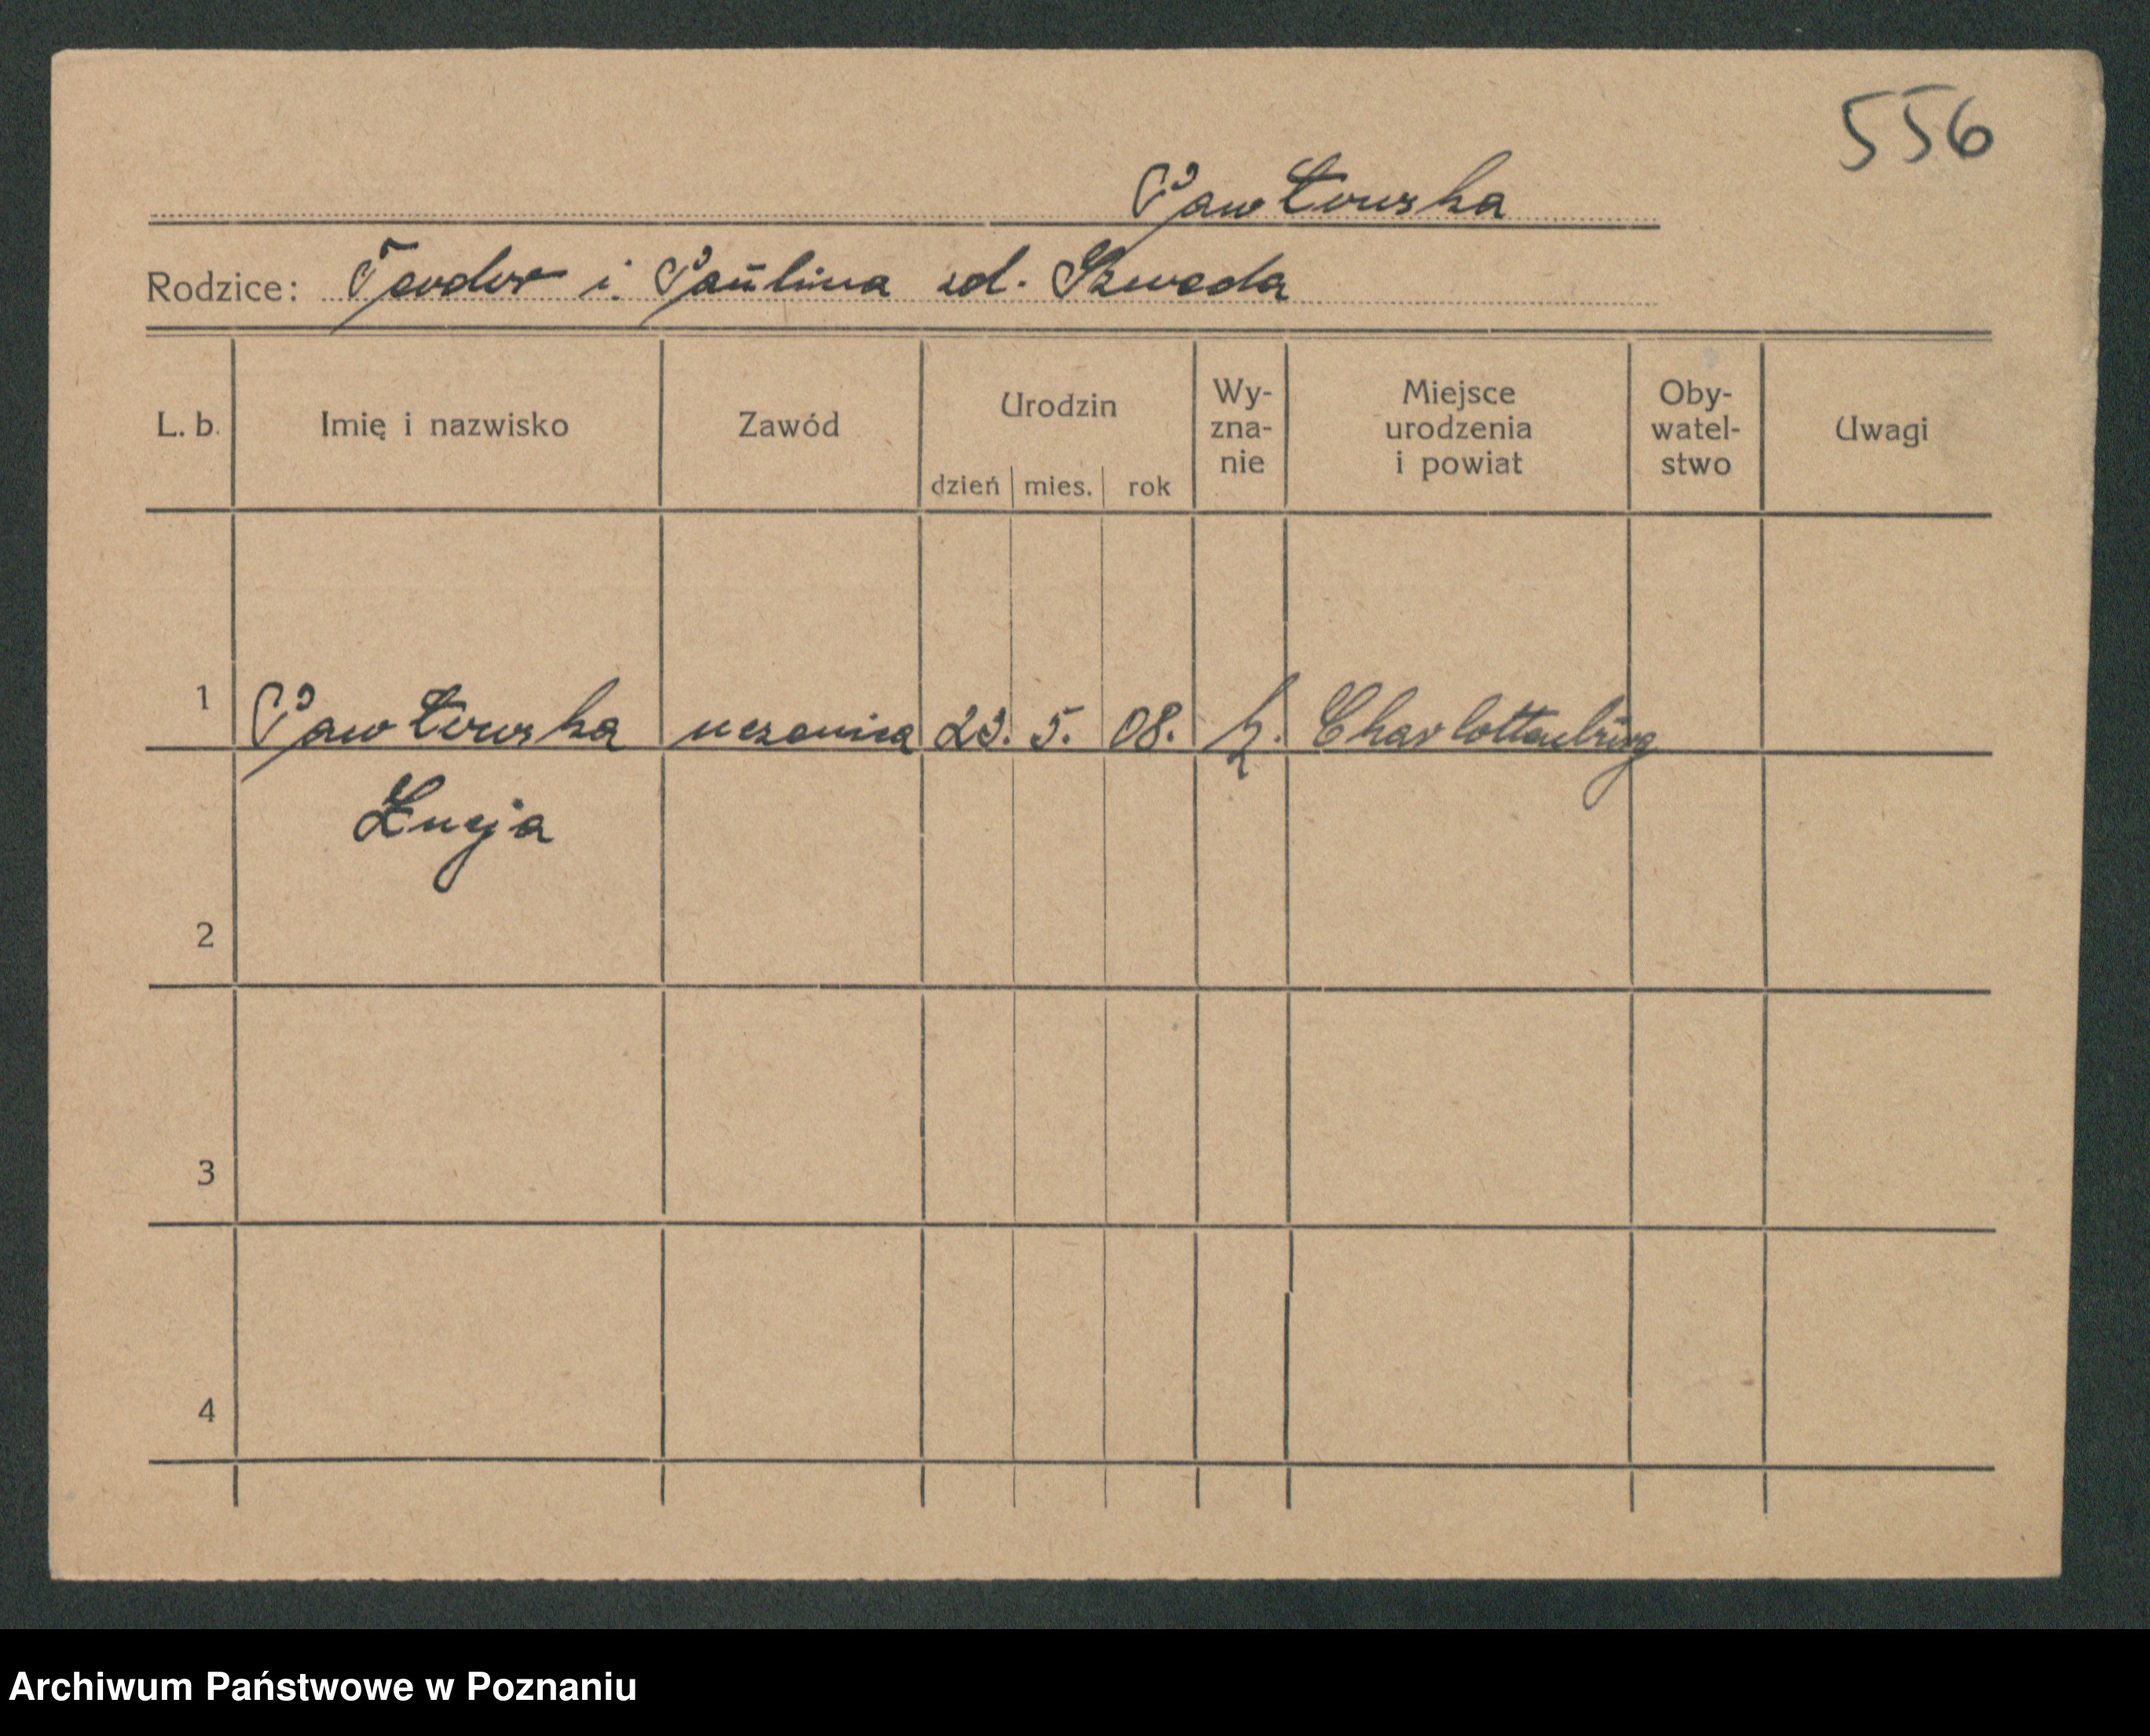 556
Pawłowska
Rodzice: Teodor i Paulina zd. Szweda
L. b. Imię i nazwisko Zawód Urodzin dzień mies. rok Wy-zna-nie Miejsce urodzenia i powiat Oby-watel-stwo Uwagi
1 Pawłowska uczenica 23. 5. 08. k. Charlottenburg
Łucja
2
3
4
Archiwum Państwowe w Poznaniu